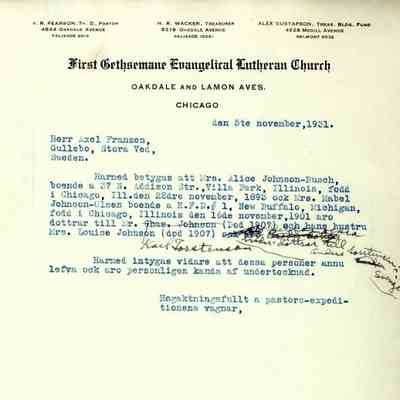 V. R. PEARSON, TH. D., PASTOR
4844 OAKDALE AVENUE
PALISADE
H. R. WACKER, TREASURER
5219 OAKDALE AVENUE
PALISADE
ALEX GUSTAFSON, TREAS. BLDG. FUND
4828 MEDILL AVENUE
BELMONT
First Gethsemane Evangelical Lutheran Church
OAKDALE AND LAMON AVES.
CHICAGO
den 5te november,1931.
Herr Axel Franzen,
Gullebo, Stora Ved,
Sweden.
Härmed betygas att Mrs. Alice Johnson-Busch,
boende a 37 N. Addison Str.,Villa Park, Illinois, född
i Chicago, Ill.den 22dre november, 1895 ock Mrs. Mabel
Johnson-Olsen boende a R.F.D.# 1, New Buffalo, Michigan,
född i Chicago, Illinois den 16de november,1901 äro
döttrar till Mr. Chas. Johnson (Död 1907) och hans hustru
Mrs. Louise Johnson (död 1907)
Karl Torstenson
Härmed intygas vidare att dessa personer ännu
lefva ock äro personligen kända af undertecknad.
Högaktningsfullt å pastors-expedi-
tionens vägnar,